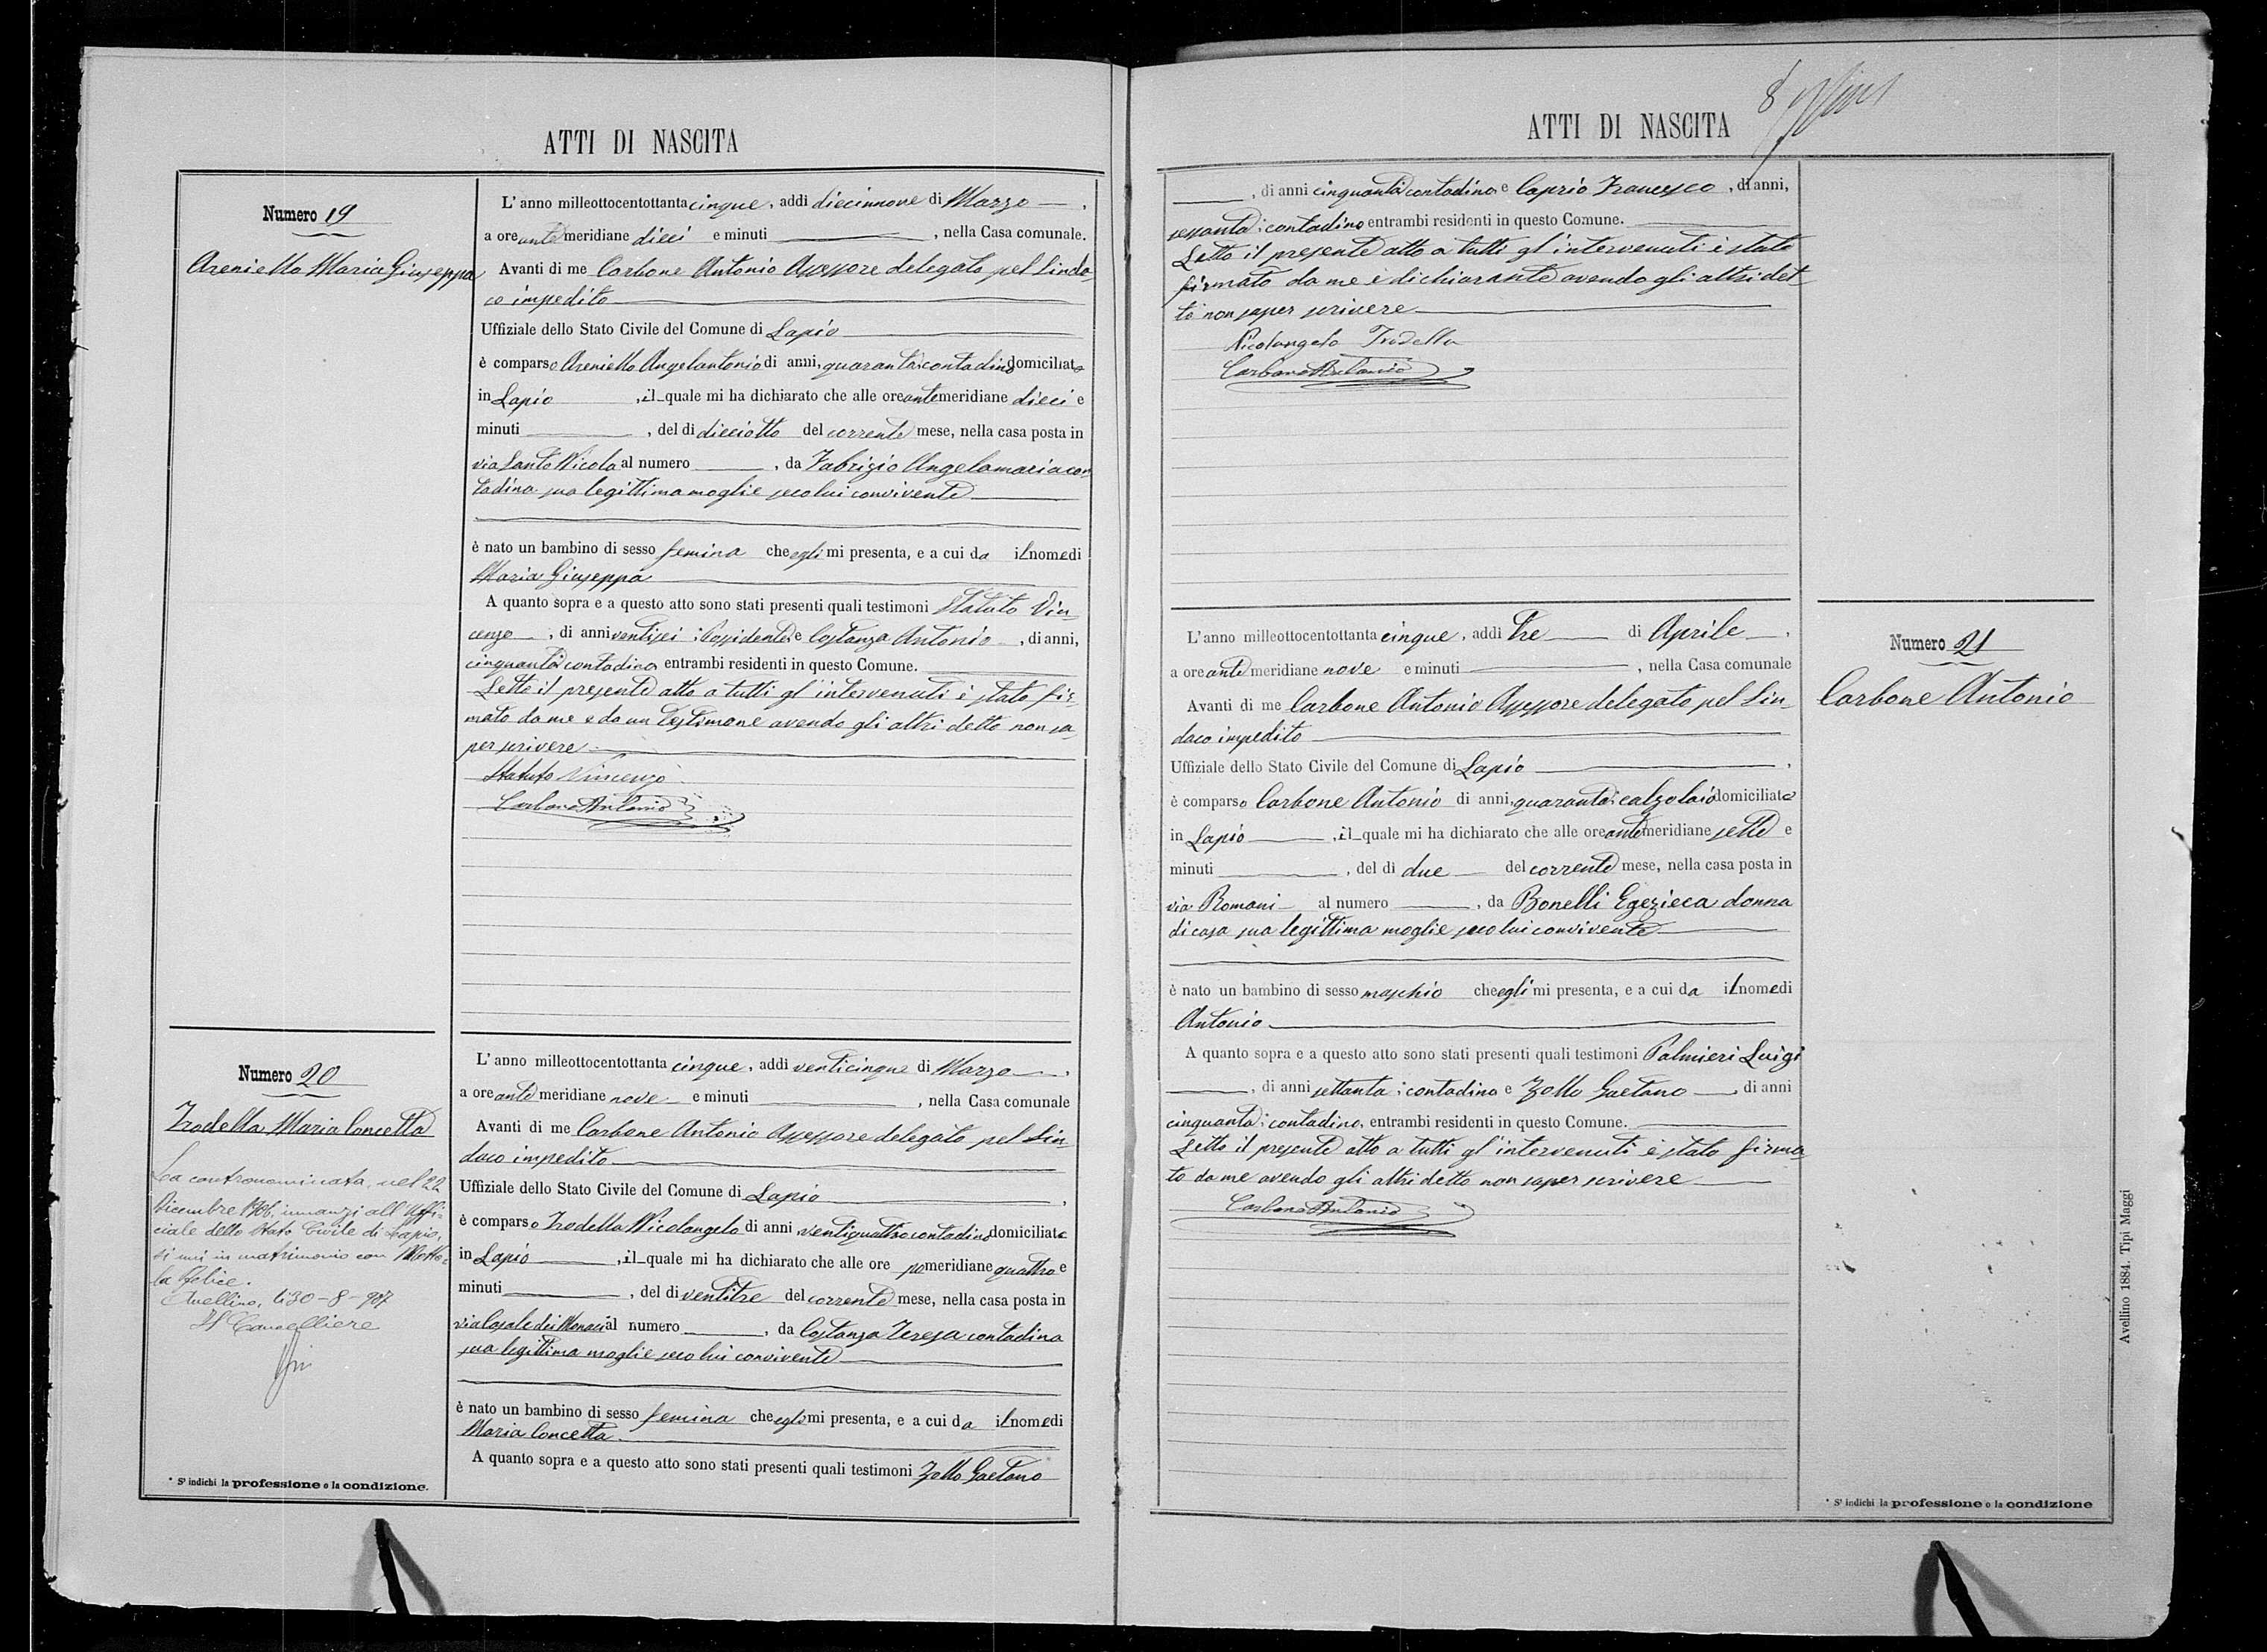 ATTI DI NASCITA
Numero 19
Areniello Maria Giuseppa
L'anno milleottocentottanta cinque, addì diecinnove di Marzo
a ore ante meridiane dieci e minuti , nella Casa comunale.
Avanti di me Carbone Antonio Assessore delegato pel Sinda-
co impedito
Uffiziale dello Stato Civile del Comune di Lapio
è comparso Areniello Angelantonio di anni, quaranta: contadino domiciliato
in Lapio , il quale mi ha dichiarato che alle ore antemeridiane dieci e
minuti , del dì dieciotto del corrente mese, nella casa posta in
via Santo Nicola al numero , da Fabrizio Angelamaria con
tadina sua legittima moglie seco lui convivente
è nato un bambino di sesso femina che egli mi presenta, e a cui da il nome di
Maria Giuseppa
A quanto sopra e a questo atto sono stati presenti quali testimoni Statuto Vin-
cenzo , di anni ventisei : Possidente, e Costanza Antonio , di anni,
cinquanta: contadino, entrambi residenti in questo Comune.
Letto il presente atto a tutti gl'intervenuti è stato fir-
mato da me e da un Testimone avendo gli altri detto non sa-
per scrivere
Statuto Vincenzo
Carbone Antonio
Numero 20
Trodella Maria Concetta
La contronominata, nel 22
Dicembre 1906, innanzi all'Uffi-
ciale dello Stato Civile di Lapio,
si unì in matrimonio con Motto-
la Felice.
Avellino, li 30-8-907
Il Cancelliere
L'anno milleottocentottanta cinque, addì venticinque di Marzo
a ore ante meridiane nove e minuti , nella Casa comunale
Avanti di me Carbone Antonio Assessore delegato pel Sin-
daco impedito
Uffiziale dello Stato Civile del Comune di Lapio
è comparso Trodella Nicolangelo di anni ventiquattro: contadino domiciliato
in Lapio , il quale mi ha dichiarato che alle ore pomeridiane quattro e
minuti , del dì ventitre del corrente mese, nella casa posta in
via Casale dei Monaci al numero , da Costanza Teresa contadina
sua legittima moglie seco lui convivente
è nato un bambino di sesso femina che egli mi presenta, e a cui da il nome di
Maria Concetta
A quanto sopra e a questo atto sono stati presenti quali testimoni Zollo Gaetano
* S' indichi la professione o la condizione.
ATTI DI NASCITA
8
, di anni cinquanta: contadino e Caprio Francesco , di anni,
sessanta: contadino entrambi residenti in questo Comune.
Letto il presente atto a tutti gl'intervenuti è stato
firmato da me e dichiarante avendo gli altri det-
to non saper scrivere
Nicolangelo Trodella
Carbone Antonio
Numero 21
Carbone Antonio
L'anno milleottocentottanta cinque, addì Tre di Aprile
a ore ante meridiane nove e minuti , nella Casa comunale
Avanti di me Carbone Antonio Assessore delegato pel Sin-
daco impedito
Uffiziale dello Stato Civile del Comune di Lapio
è comparso Carbone Antonio di anni, quaranta: calzolaio domiciliato
in Lapio , il quale mi ha dichiarato che alle ore antemeridiane sette e
minuti , del dì due del corrente mese, nella casa posta in
via Romani al numero , da Bonelli Egezieca donna
di casa sua legittima moglie seco lui convivente
è nato un bambino di sesso maschio che egli mi presenta, e a cui da il nome di
Antonio
A quanto sopra e a questo atto sono stati presenti quali testimoni Palmieri Luigi
, di anni settanta: contadino e Zollo Gaetano di anni
cinquanta: contadino, entrambi residenti in questo Comune.
Letto il presente atto a tutti gl'intervenuti è stato firma-
to da me avendo gli altri detto non saper scrivere
Carbone Antonio
* S' indichi la professione o la condizione
Avellino 1884. Tipi Maggi